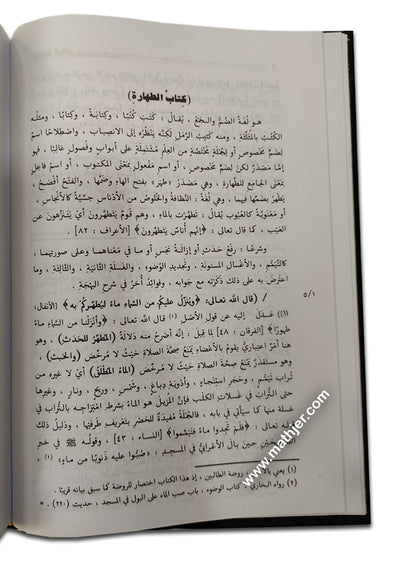 (كِتابُ الطهارةِ)
هو لُغةً الضمُّ والجمعُ، يُقالُ: كَتَبَ كَتْبًا، وكِتابةً، وكِتابًا، ومثلُه
الكُتْبُ بالمثلَّثة، ومنه كثيب الرمل لكنَّه ينظرُه إلى الانصباب، واصطلاحًا اسم
لضَمٍّ مَخْصوصٍ، أو لجُملةٍ مُخْتصَّةٍ من العِلْمِ مُشْتَمِلةٍ على أبوابٍ وفُصولٍ غالبًا، فهو
إمَّا مصدَرٌ لكن لِضَمٍّ مَخْصوصٍ، أو اسم مفعولٍ بمعْنَى المكتوبِ، أو اسم فاعلٍ
بمعنى الجامعِ للطهارةِ، وهي مَصْدَرُ «طهر» بفتحِ الهاءِ وضمِّها، والفتحُ أفصَحُ،
يَطْهُرُ بضمِّها فيهما، وهي لُغةً: النَّظافةُ والخُلوصُ من الأدْناسِ حسِّيَّةً كالأنجاسِ،
أو معنويَّةً كالعُيوبِ يُقالُ: تطهَّرتُ بالماءِ، وهم قومٌ يتطهَّرون أي يتنزَّهون عن
العَيْبِ، كما قال تعالى: ﴿إنَّهم أُناسٌ يَتَطَهَّرون﴾ [الأعراف: ٨٢].
وشرعًا: رفعُ حَدَثٍ أو إزالةُ نَجَسٍ أو ما في مَعْناهما وعلى صورتِهما،
كالتيمُّمِ، والأغسالِ المسنونةِ، وتجديدِ الوضوءِ، والغَسْلةِ الثانيةِ، والثالثةِ، وما
اعترَضَ به على ذلك ذكَرْتُه مع جوابِه، وفوائدَ أُخرَ في شرحِ البهجةِ.
٥/١
/ (قال الله تعالى: ﴿ويُنَزِّلُ عليكم من السَّماءِ ماءً ليُطَهِّرَكم به﴾ [الأنفال:
١١]) عَدَلَ إليه عن قولِ الأصلِ (١) قال الله تعالى: ﴿وأنزَلْنا من السماءِ ماءً
طَهورًا﴾ [الفرقان: ٤٨] لِما قيلَ: إنه أصرَحُ منه دَلالةً (المُطَهِّرُ للحَدَثِ)، وهو
هنا أمرٌ اعتِباريٌّ يقومُ بالأعضاءِ يَمْنَعُ صحَّةَ الصلاةِ حيثُ لا مُرخِّصَ (والخبثِ)،
وهو مستَقْذَرٌ يَمْنَعُ صحَّةَ الصلاةِ حيثُ لا مُرخِّصَ (الماءُ المطْلَقُ) أي لا غيرُه من
تُرابِ تَيَمُّمٍ، وحَجَرِ استِنْجاءٍ، وأدويةِ دِباغٍ، وشمسٍ، وريحٍ، ونارٍ، وغيرِها
حتى التُّرابِ في غَسَلاتِ الكلبِ فإنَّ المُزيلَ هو الماءُ بشرطِ امتِزاجِه بالتُّرابِ في
غَسْلةٍ منها كما سيأتي في بابِه، فالجُملةُ مُفيدةٌ للحَصْرِ بتعريفِ طرَفَيْها، ودليلُ ذلك
قوله تعالى: ﴿فلم تَجِدوا ماءً فتَيَمَّموا﴾ [النساء: ٤٣]، وقوله ﷺ في خبرِ
حينَ بالَ الأعْرابيُّ في المسجدِ: «صُبُّوا عليه ذَنوبًا من ماءٍ» (٢)،
(١) يعني روضة الطالبين، إذ هذا الكتاب اختصار للروضة كما سبق بيانه قريبًا.
(٢) رواه البخاري، كتاب الوضوء، باب صب الماء على البول في المسجد، حديث (٢٢٠). =
www.mathjer.com